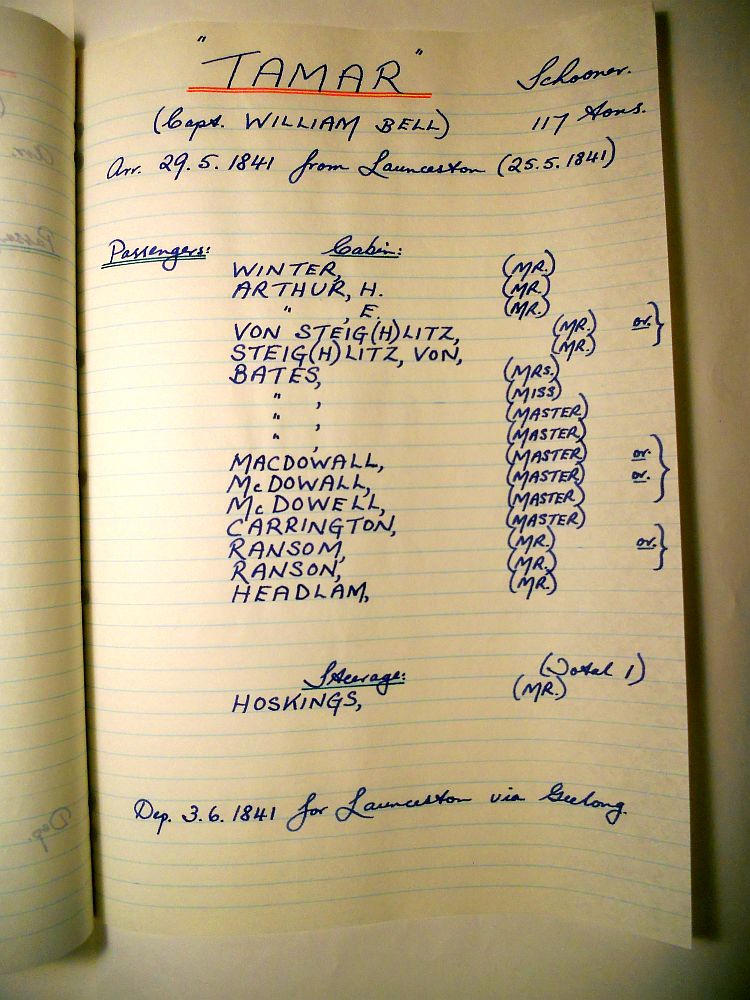 "TAMAR" Schooner.
(Capt. WILLIAM BELL) 117 Tons.
Arr. 29.5.1841 from Launceston (25.5.1841)
Passengers: Cabin:
WINTER, (MR.)
ARTHUR, H. (MR.)
" , E. (MR.)
VON STEIG(H)LITZ, (MR.) or. }
STEIG(H)LITZ, VON, (MR.)
BATES, (MRS.)
" , (MISS)
" , (MASTER)
" , (MASTER)
MACDOWALL, (MASTER) or. }
McDOWALL, (MASTER) or.
McDOWELL, (MASTER)
CARRINGTON, (MASTER)
RANSOM, (MR.) or. }
RANSON, (MR.)
HEADLAM, (MR.)
Steerage: (Total 1)
HOSKINGS, (MR.)
Dep. 3.6.1841 for Launceston via Geelong.